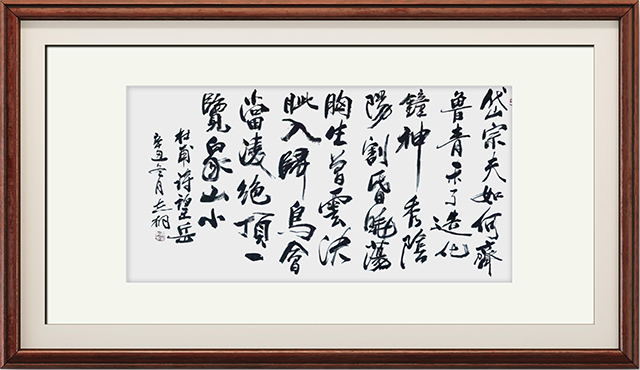 岱宗夫如何齊
魯青未了造化
鐘神秀陰
陽割昏曉蕩
胸生曾雲決
眦入歸鳥會
當凌絕頂一
覽衆山小
杜甫詩望岳
辛丑冬月